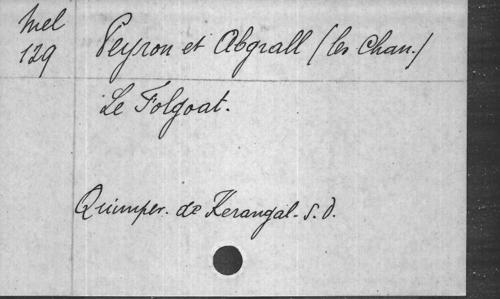 Mel
129
Peyron et Abgrall (les Chan.)
Le Folgoat.
Quimper. de Kerangal. s. d.